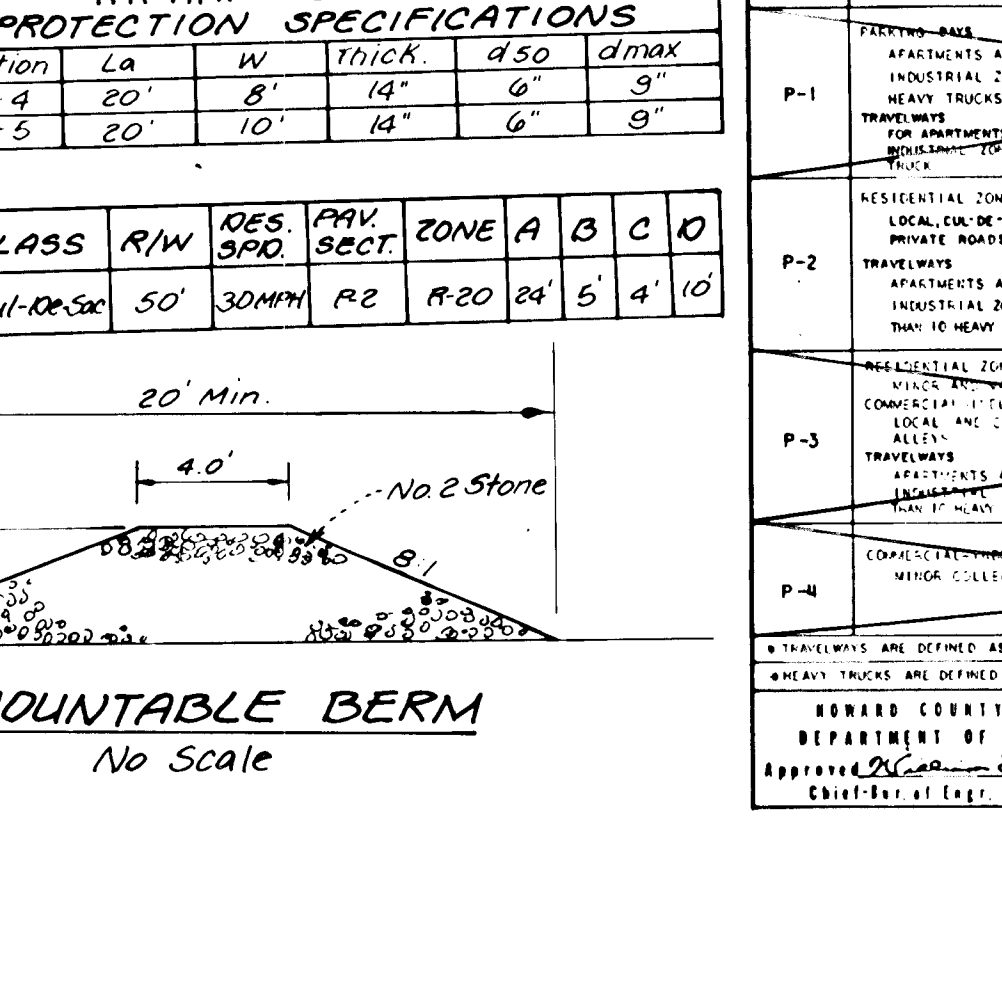 PROTECTION SPECIFICATIONS
tion La W Thick. d50 dmax
4 20' 8' 14" 6" 9"
5 20' 10' 14" 6" 9"
LASS R/W DES. SPD. PAV. SECT. ZONE A B C D
ul-De-Sac 50' 30MPH P-2 R-20 24' 5' 4' 10'
20' Min.
4.0'
No. 2 Stone
8:1
OUNTABLE BERM
No Scale
P-1
PARKING BAYS
APARTMENTS A
INDUSTRIAL Z
HEAVY TRUCKS
TRAVELWAYS
FOR APARTMENTS
INDUSTRIAL ZON
TRUCK
P-2
RESIDENTIAL ZON
LOCAL, CUL-DE-
PRIVATE ROADS
TRAVELWAYS
APARTMENTS A
INDUSTRIAL ZO
THAN 10 HEAVY
P-3
RESIDENTIAL ZON
MINOR AND
COMMERCIAL
LOCAL AND C
ALLEYS
TRAVELWAYS
APARTMENTS A
INDUSTRIAL
THAN 10 HEAVY
P-4
COMMERCIAL
MINOR COLLE
TRAVELWAYS ARE DEFINED AS
HEAVY TRUCKS ARE DEFINED
HOWARD COUNTY
DEPARTMENT OF
Approved William
Chief-Bur. of Engr.